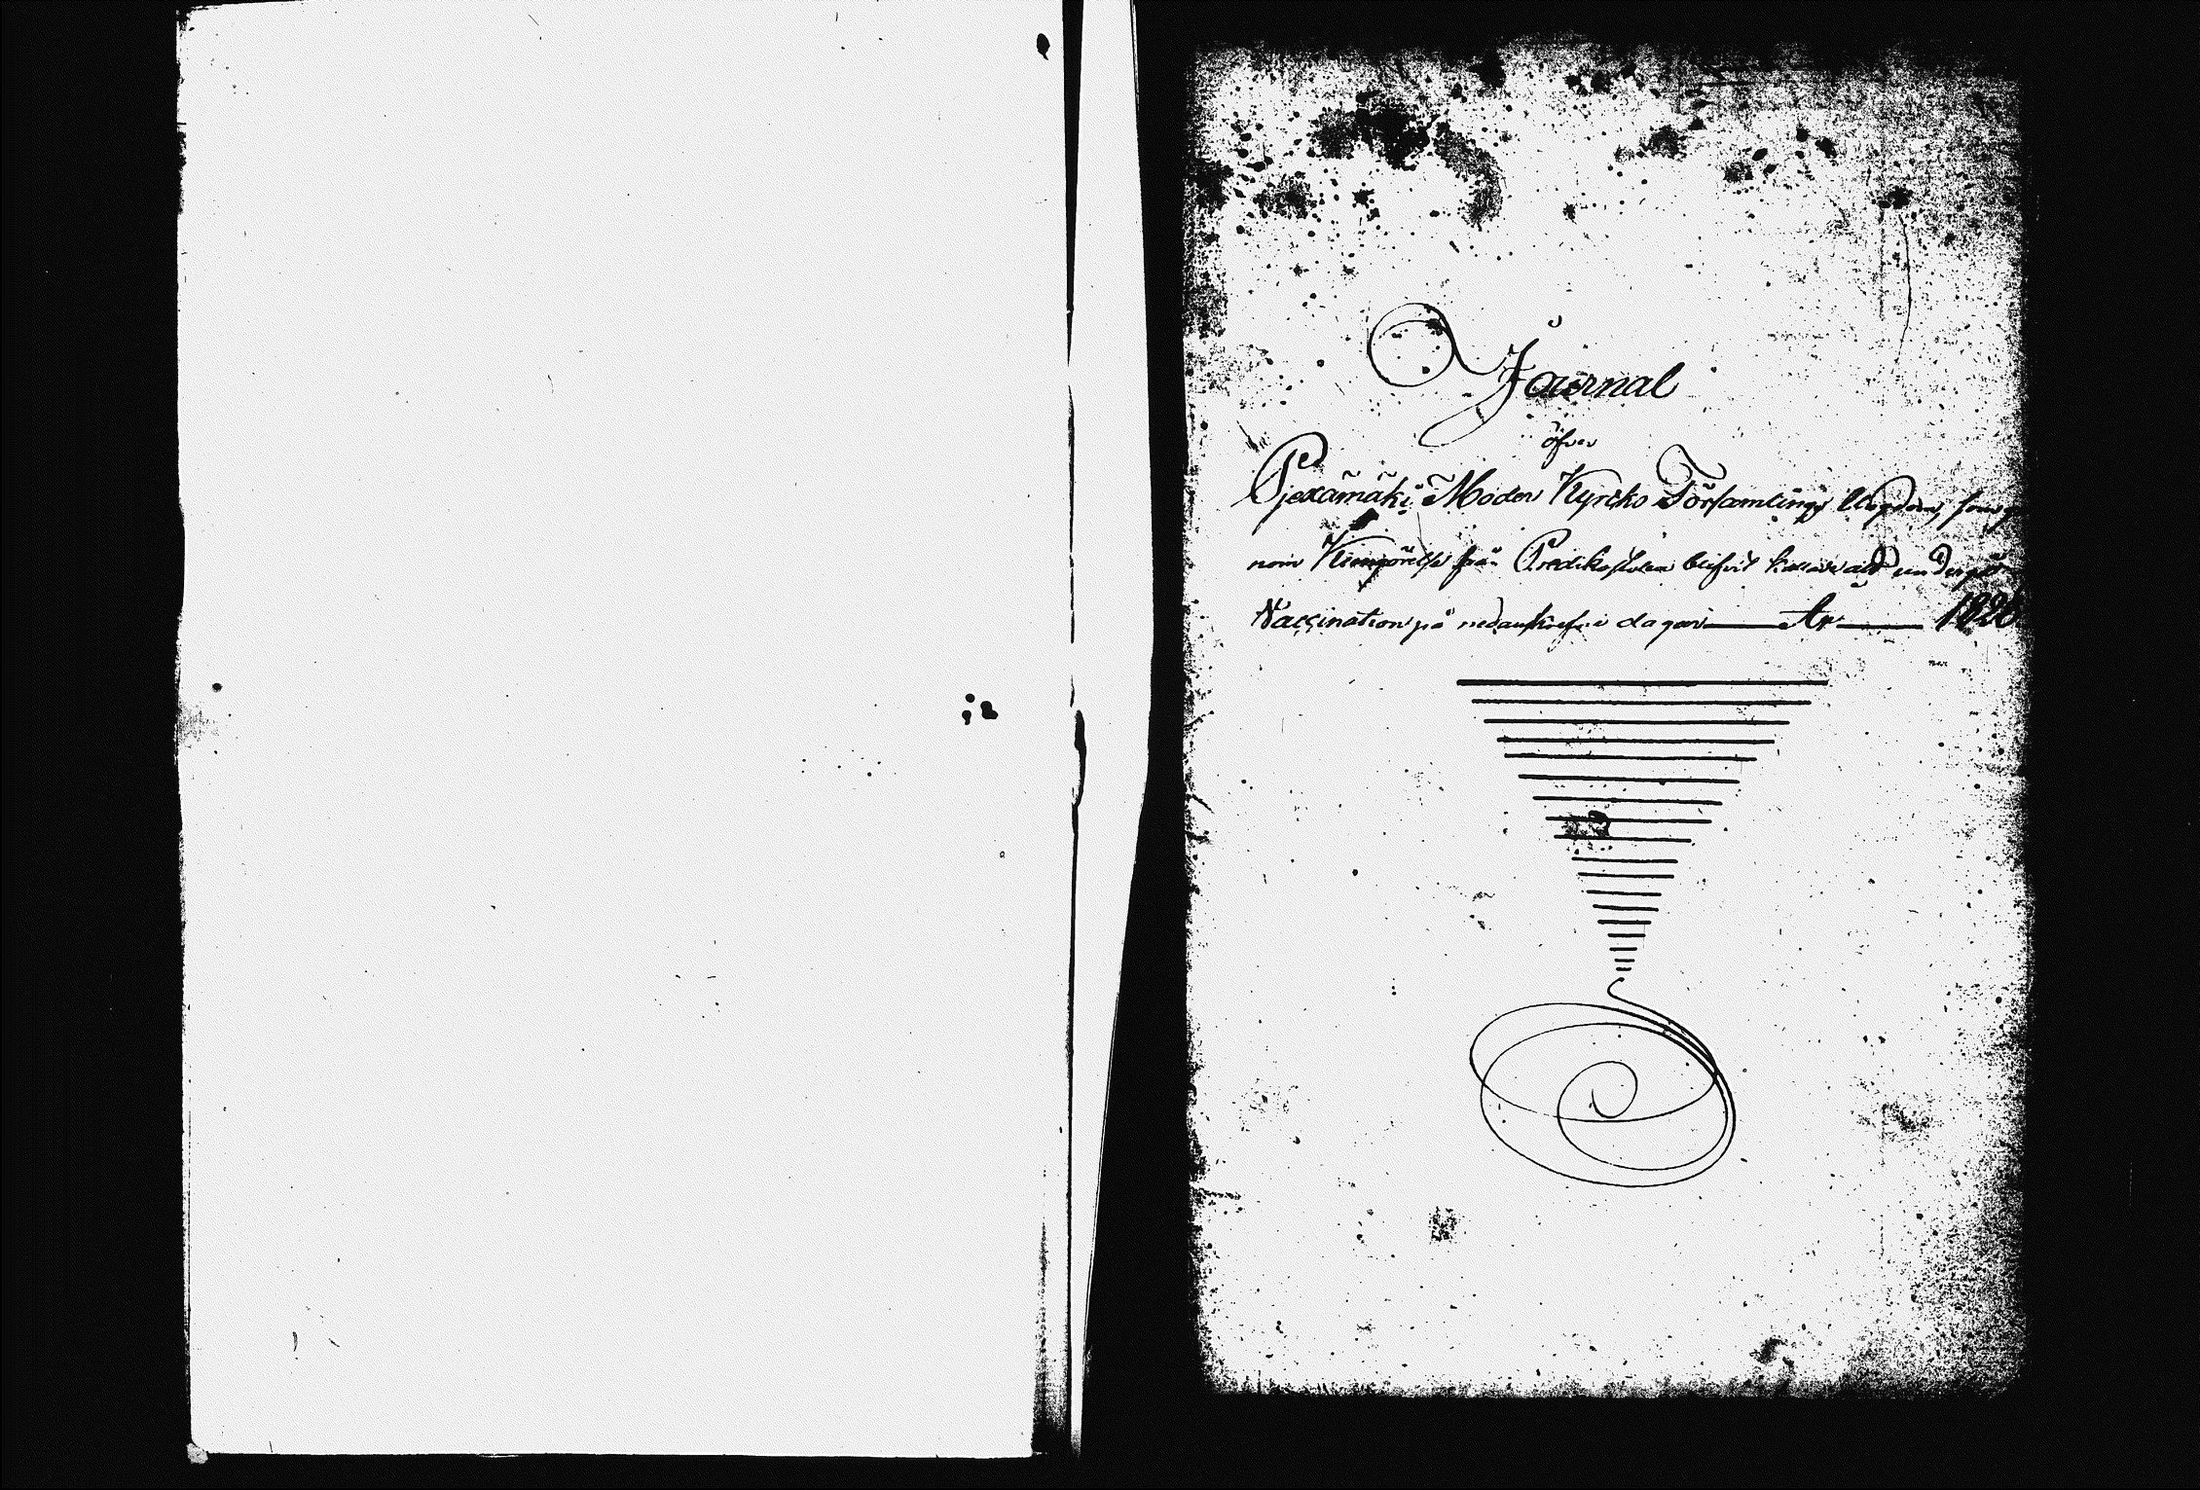 Journal
öfver
Pjexämäki Moder Kyrko Församlings Ungdom, som ge
nom Kungörelse från Predikostolen blifvit kallade att undergå
Vaccination på nedanskrefne dagar År 1826